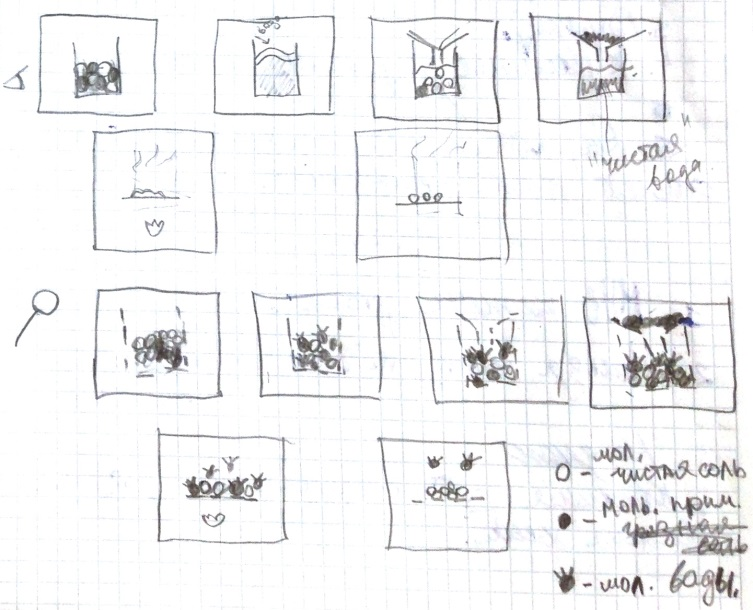 "чистая
вода"
мол.
О - чистая соль
● - моль. прим.
грязная
соль
- мол. воды.